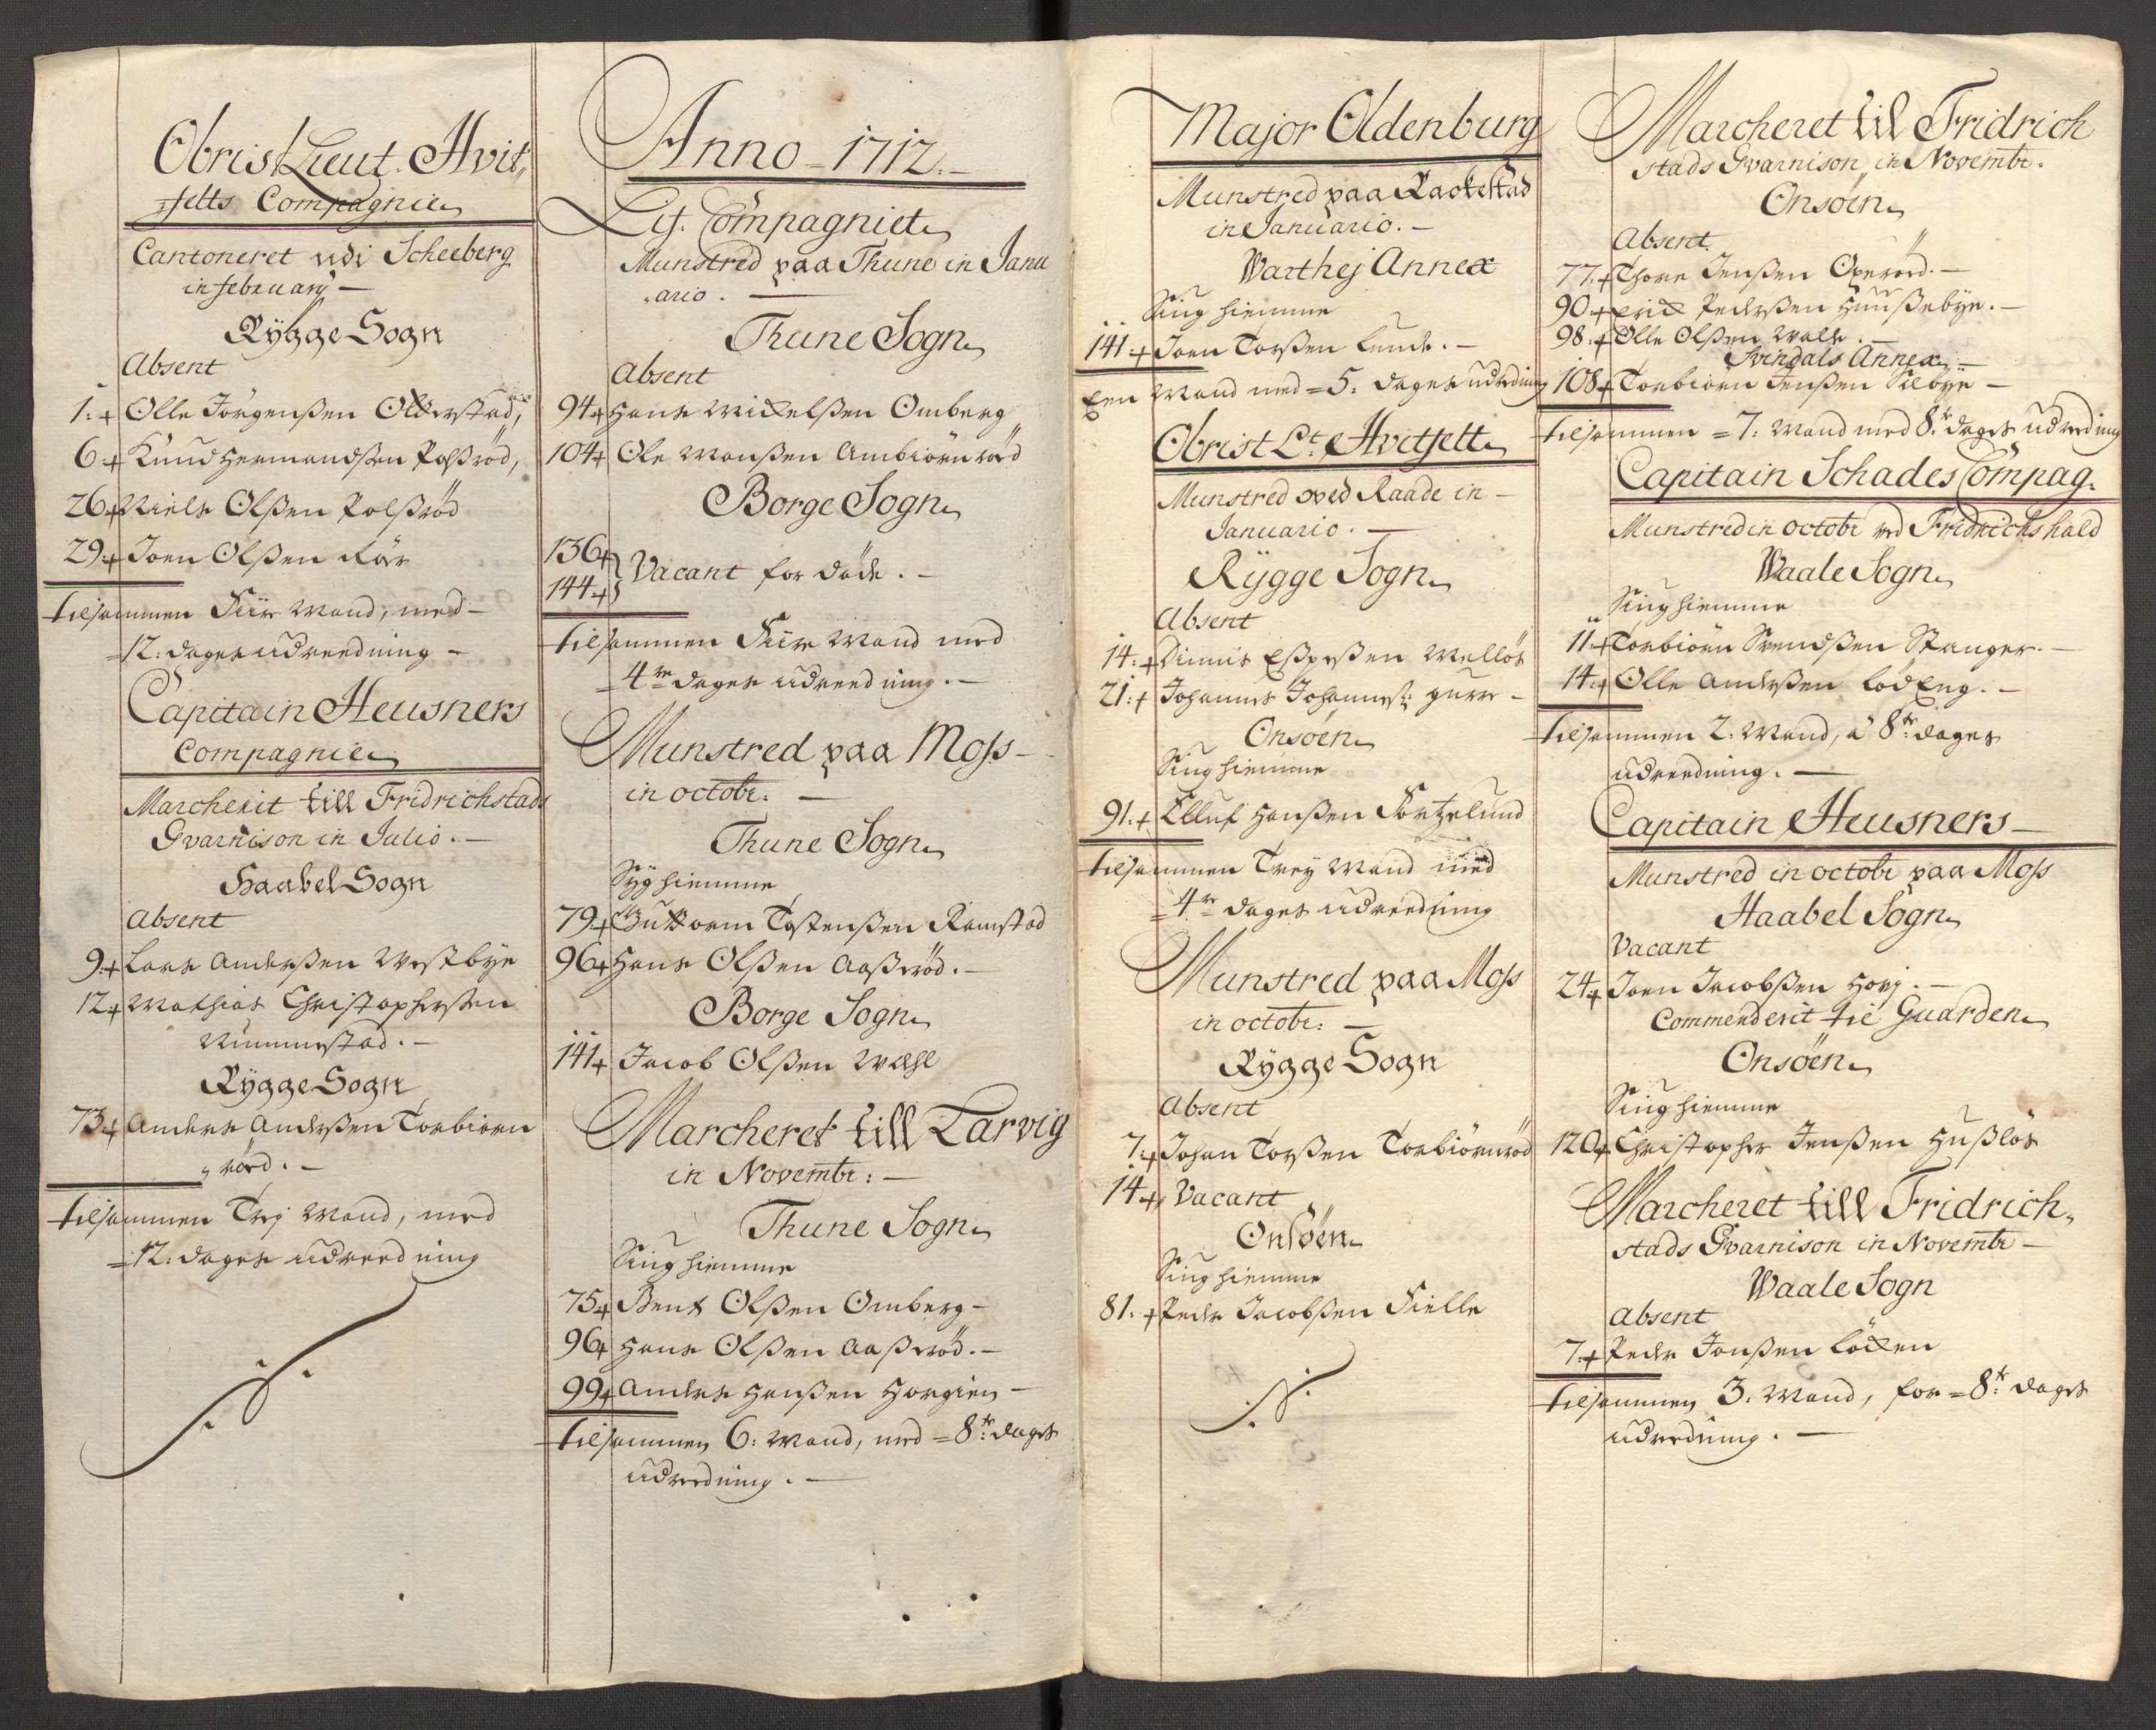 Obrist Lieut. Hvit,
feltz Compagnie
Cantoneret udi Scheeberg
in february —
Rÿgge Sogn
Absent
1:+ Olle Jörgenßen Olkerstad,
6+ Knud Hermandßen Polßröd,
26+ Niels Olßen Polßröd
29+ Joen Olßen Kör
tilsammen Fiire Mand, med —
12: dages udreedning —
Capitain Heusners
Compagnie
Marcherit till Fridrichstads
Gvarnison in Julio. —
Haabel Sogn
Absent
9+ Lars Anderßen Westbye
12+ Mathias Christophersen
Rummestad. —
Rÿgge Sogn
73+ Anders Anderßen Torbiörn
röed. —
tilsammen Trej Mand, med
12: dages udreedning
Anno — 1712. —
Lif. Compagniet
Munstred paa Thune in Janu
ario. —
Thune Sogn
Absent
94+ Hans Mickelßen Omberg
104+ Ole Monßen Ambiörnröd
Borge Sogn
136+
144+ } Vacant for döde. —
tilsammen Fiire Mand med
4re dages udreedning. —
Munstred paa Moss —
in octobr: —
Thune Sogn
Syg hiemme
79+ Guttorm Tostenßen Ramstad
96+ Hans Olßen Aaßeröd. —
Borge Sogn
141+ Jacob Olßen Wehl
Marcheret till Larvig
in Novembr: —
Thune Sogn
Siug hiemme
75+ Bent Olßen Omberg —
96+ Hans Olßen Aaßeröd. —
99+ Anders Hanßen Horgien —
tilsammen 6: Mand, med 8te dages
udreedning. —
Major Oldenburg
Munstred paa Rackestad
in Januario. —
Warthej Annex
Siug hiemme
141+ Joen Torßen Lunde. —
Een Mand med 5: dages udredning
Obrist Lt. Hvitfelt
Munstred ved Raade in —
Januario. —
Rÿgge Sogn
Absent
14:+ Dinnis Eßpeßen Melløs
21:+ Johannes Johannes: gurre —
Onsöen
Siug hiemme
91+ Elluf Hanßen Kortzelund
tilsammen Trej Mand med
4re dages udreedning
Munstred paa Moss
in octobr: —
Rÿgge Sogn
Absent
7+ Johan Torßen Torbiörnröd
14+ Vacant
Onsöen
Siug hiemme
81:+ Peder Jacobßen Kielle
Marcheret till Fridrich
stads Gvarnison, in Novembr.
Onsöen
Absent
77+ Thore Jenßen Oxeröd. —
90+ Erik Pederßen Huußebye. —
98:+ Olle Olßen Walle. —
Svindals Annex —
108+ Torbiörn Jenßen Silbye —
tilsammen 7: Mand med 8te dages udreedning
Capitain Schades Compag.
Munstred in octobr ved Fridrichshald
Waale Sogn
Siug hiemme
11+ Torbiörn Svendßen Stanger. —
14+ Olle Anderßen Lödeng. —
tilsammen 2. Mand, a 8te dages
udreedning. —
Capitain Heusners —
Munstred in octobr paa Moss
Haabel Sogn
Vacant
24+ Joen Jacobßen Hoej. —
Commenderit til Guarden
Onsöen
Siug hiemme
120+ Christopher Jenßen Hußløs
Marcheret till Fridrich,
stads Gvarnison in Novembr —
Waale Sogn
Absent
7+ Peder Jonßen Löcken
tilsammen 3: Mand, for 8te dages
udreedning. —